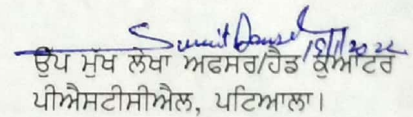 Sumit Bansal
ਉਪ ਮੁੱਖ ਲੇਖਾ ਅਫਸਰ/ਹੈਡ ਕੁਆਂਟਰ
ਪੀਐਸਟੀਸੀਐਲ, ਪਟਿਆਲਾ।